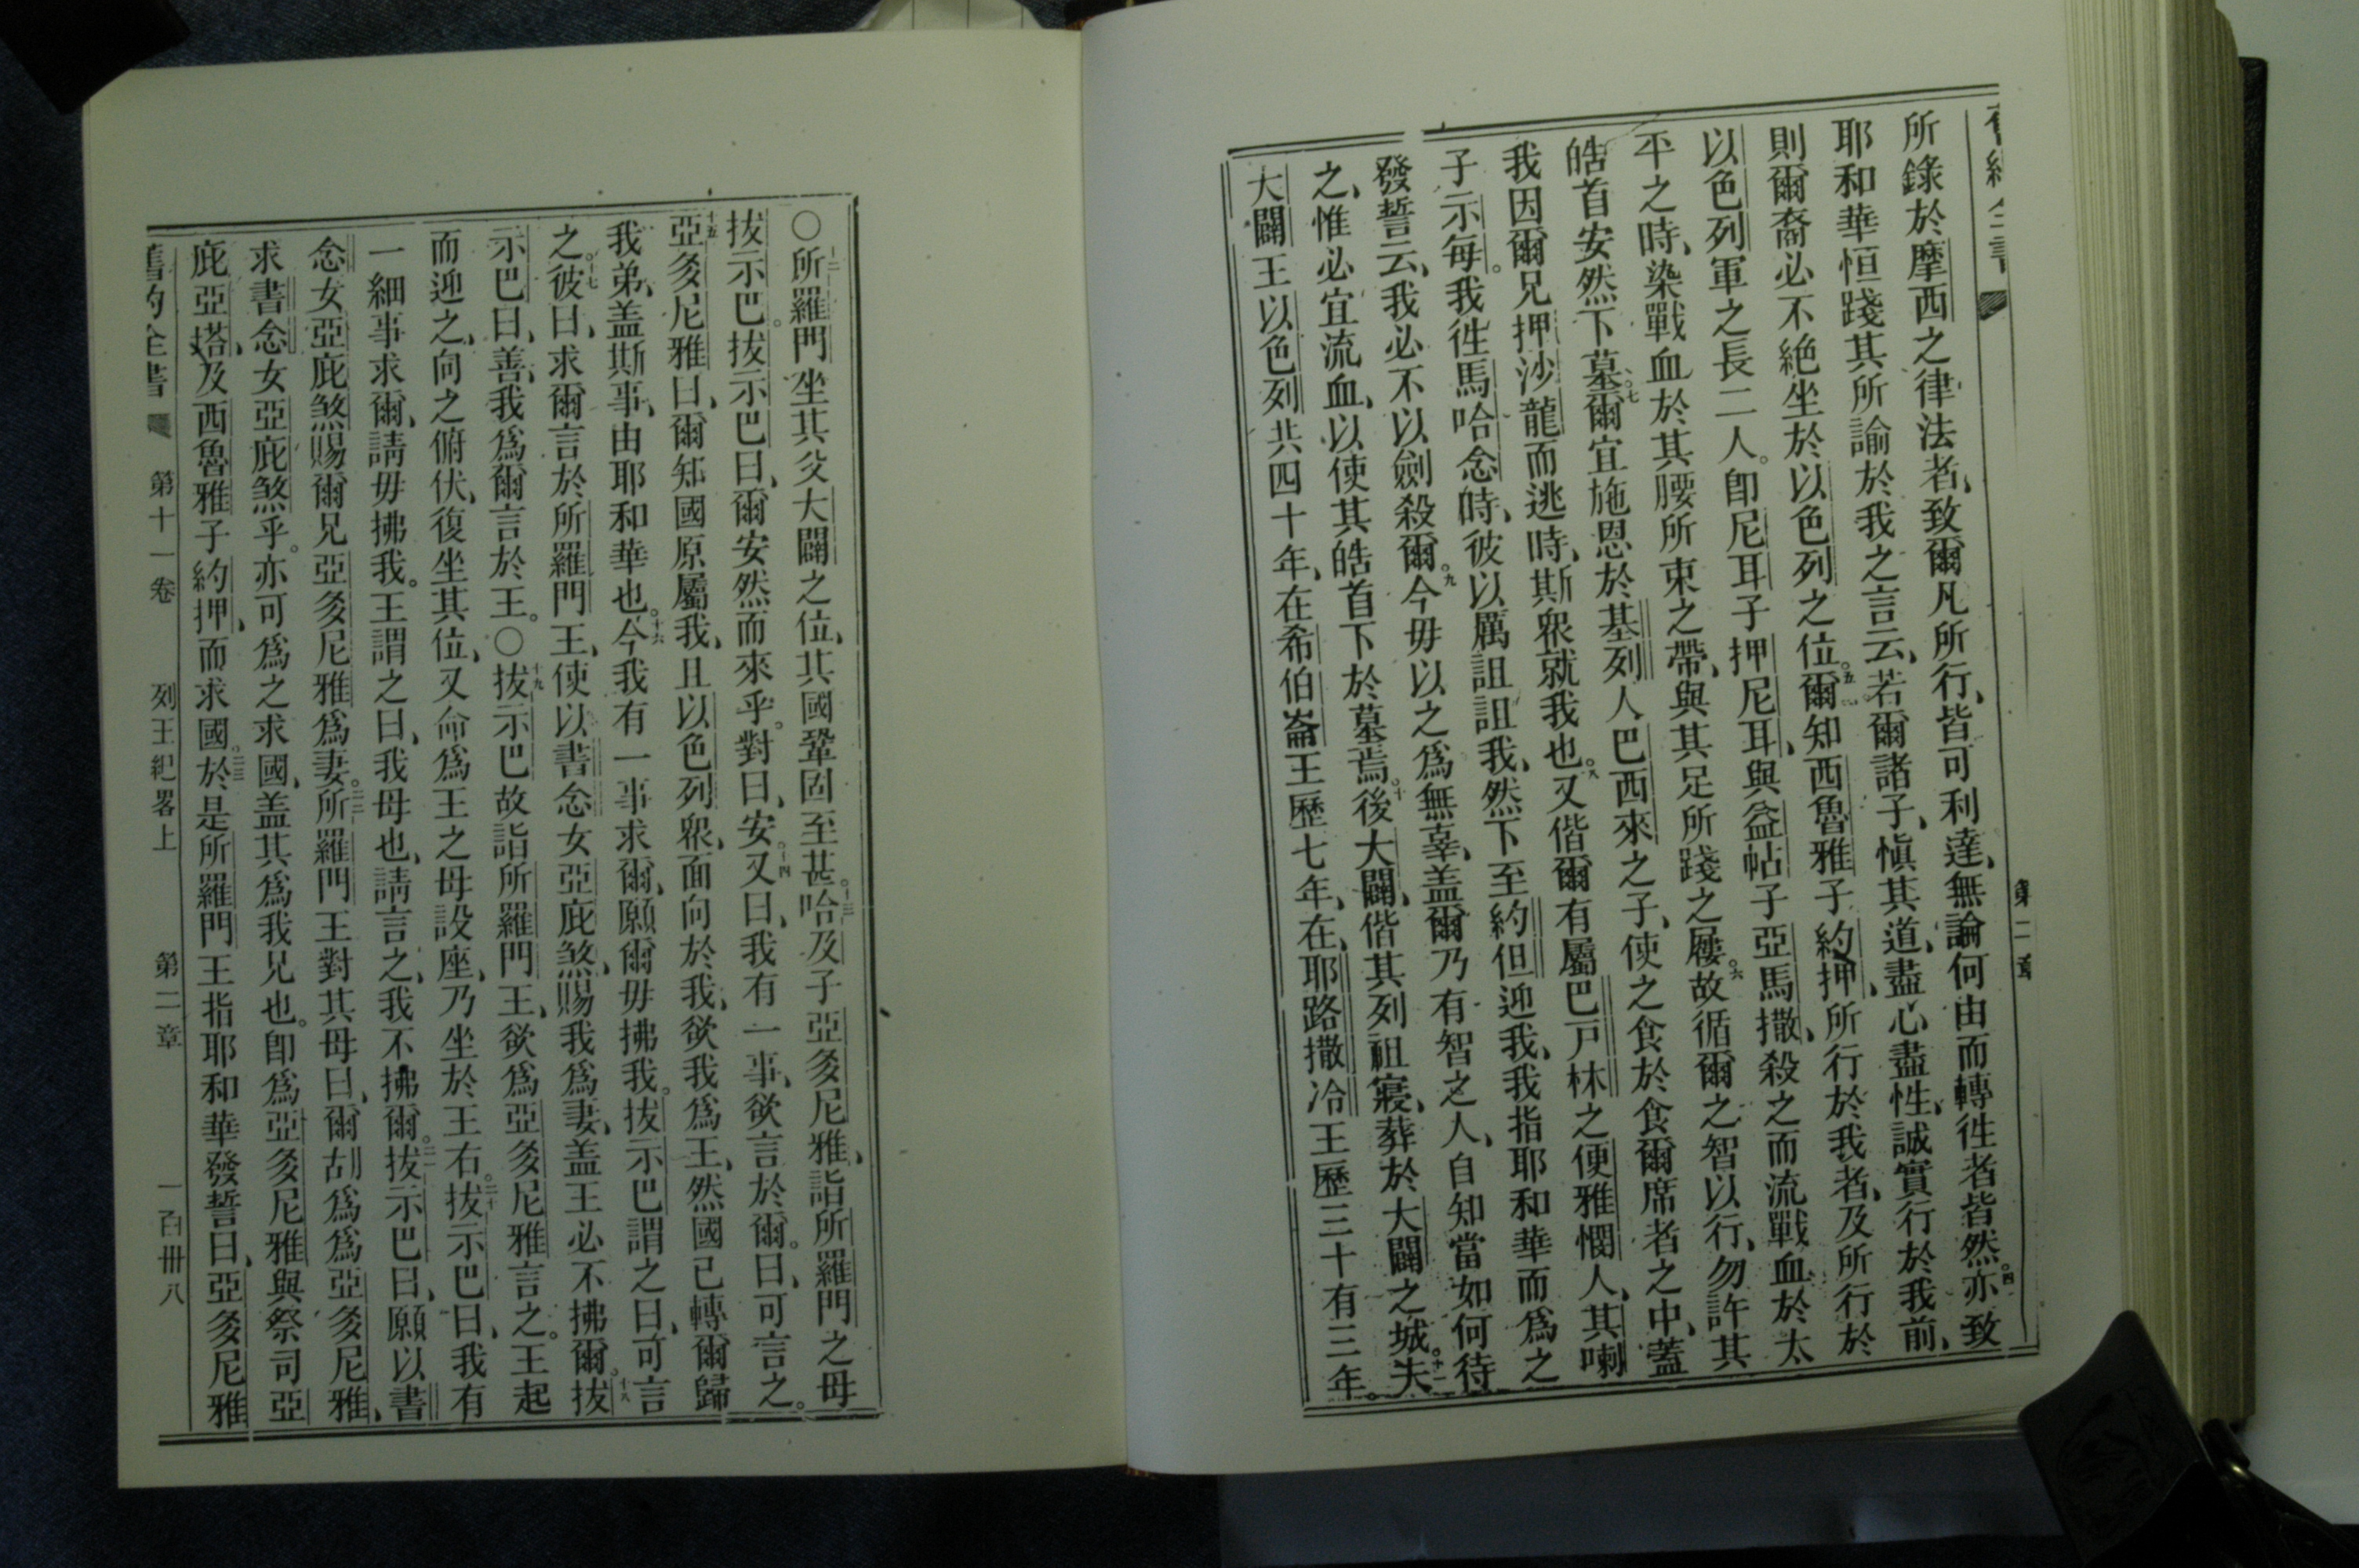 第二章
所錄於摩西之律法者、致爾凡所行、皆可利達、無論何由而轉徃者皆然。四亦致
耶和華恒踐其所諭於我之言云、若爾諸子、愼其道、盡心盡性、誠實行於我前、
則爾裔必不絶坐於以色列之位。五爾知西魯雅子約押、所行於我者、及所行於
以色列軍之長二人。卽尼耳子押尼耳、與益帖子亞馬撒、殺之而流戰血於太
平之時、染戰血於其腰所束之帶、與其足所踐之屨。六故循爾之智以行、勿許其
皓首安然下墓。七爾宜施恩於基列人巴西來之子、使之食於食爾席者之中、蓋
我因爾兄押沙龍而逃時、斯衆就我也。八又偕爾有屬巴戸林之便雅憫人、其喇
子示每。我徃馬哈念時、彼以厲詛詛我、然下至約但迎我、我指耶和華而爲之
發誓云、我必不以劍殺爾。九今毋以之爲無辜、盖爾乃有智之人、自知當如何待
之、惟必宜流血、以使其皓首下於墓焉。十後大闢、偕其列祖寢、葬於大闢之城。十一夫
大闢王以色列共四十年、在希伯崙王歷七年、在耶路撒冷王歷三十有三年。
〇十二所羅門坐其父大闢之位、其國鞏固至甚。十三哈及子亞多尼雅、詣所羅門之母
拔示巴。拔示巴曰、爾安然而來乎。對曰、安。十四又曰、我有一事、欲言於爾。曰、可言之。
十五亞多尼雅曰、爾知國原屬我、且以色列衆、面向於我、欲我爲王、然國已轉爾歸
我弟、盖斯事、由耶和華也。十六今我有一事求爾、願爾毋拂我。拔示巴謂之曰、可言
之。十七彼曰、求爾言於所羅門王、使以書念女亞庇煞、賜我爲妻、盖王必不拂爾。十八拔
示巴曰、善、我爲爾言於王。〇十九拔示巴故詣所羅門王、欲爲亞多尼雅言之。王起
而迎之、向之俯伏、復坐其位、又命爲王之母設座、乃坐於王右。二十拔示巴曰、我有
一細事求爾、請毋拂我。王謂之曰、我母也、請言之、我不拂爾。二一拔示巴曰、願以書
念女亞庇煞賜爾兄亞多尼雅爲妻。二二所羅門王對其母曰、爾胡爲爲亞多尼雅、
求書念女亞庇煞乎。亦可爲之求國、盖其爲我兄也。卽爲亞多尼雅與祭司亞
庇亞塔、及西魯雅子約押、而求國。二三於是所羅門王指耶和華發誓曰、亞多尼雅
舊約全書 第十一卷 列王紀畧上 第二章 一百卅八